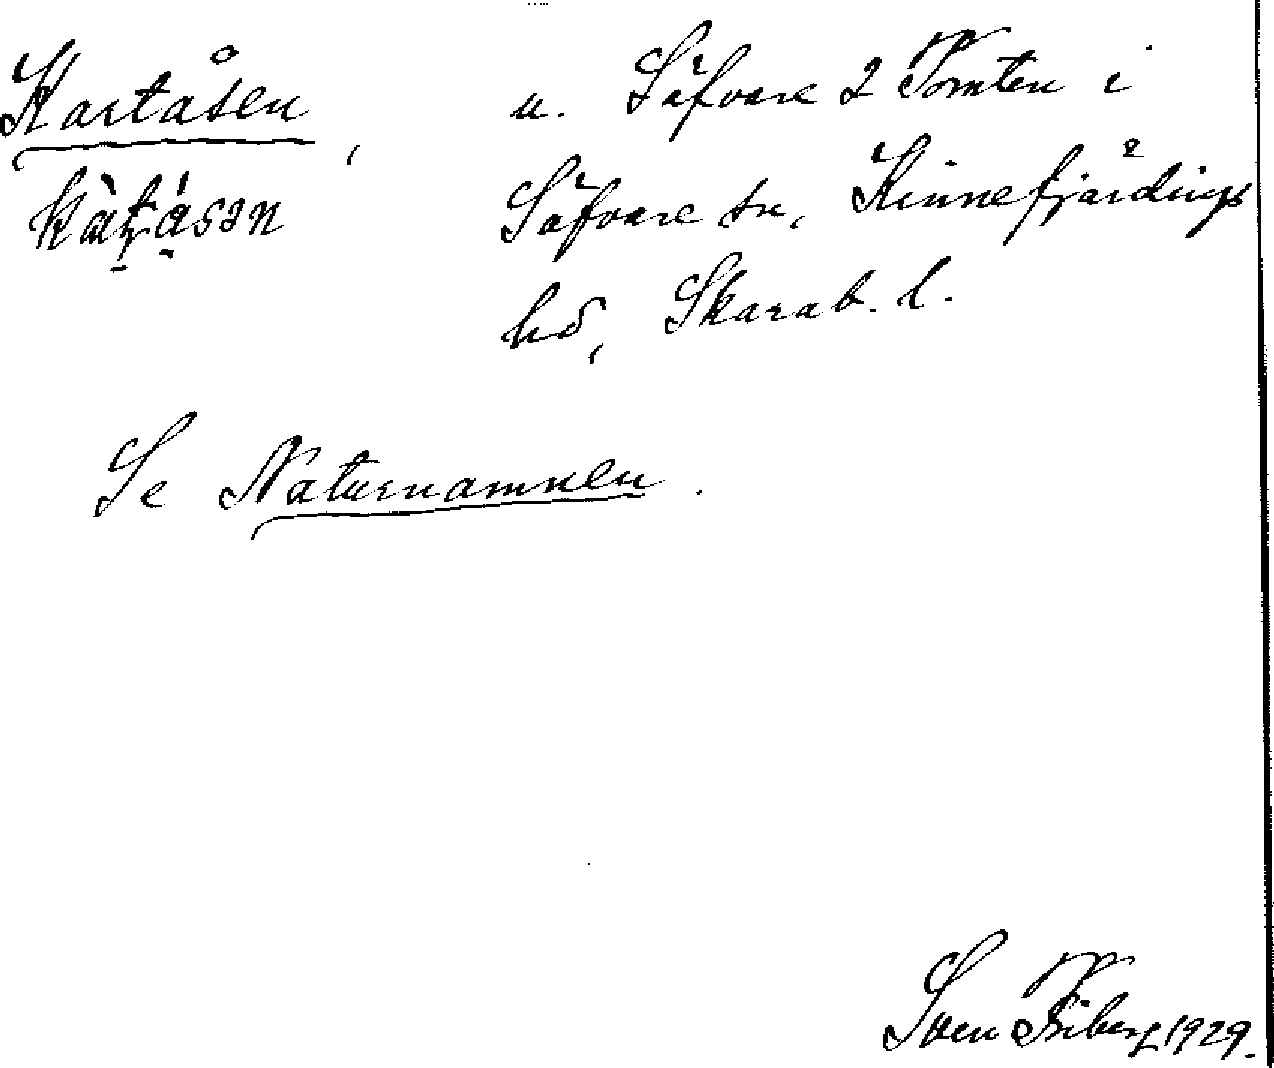 Kartåsen,
u. Säfvare 2 Tomten i
Säfvare sn, Kinnefjärdings
hd, Skarab. l.
Se Naturnamnen.
Sven Friberg 1929.